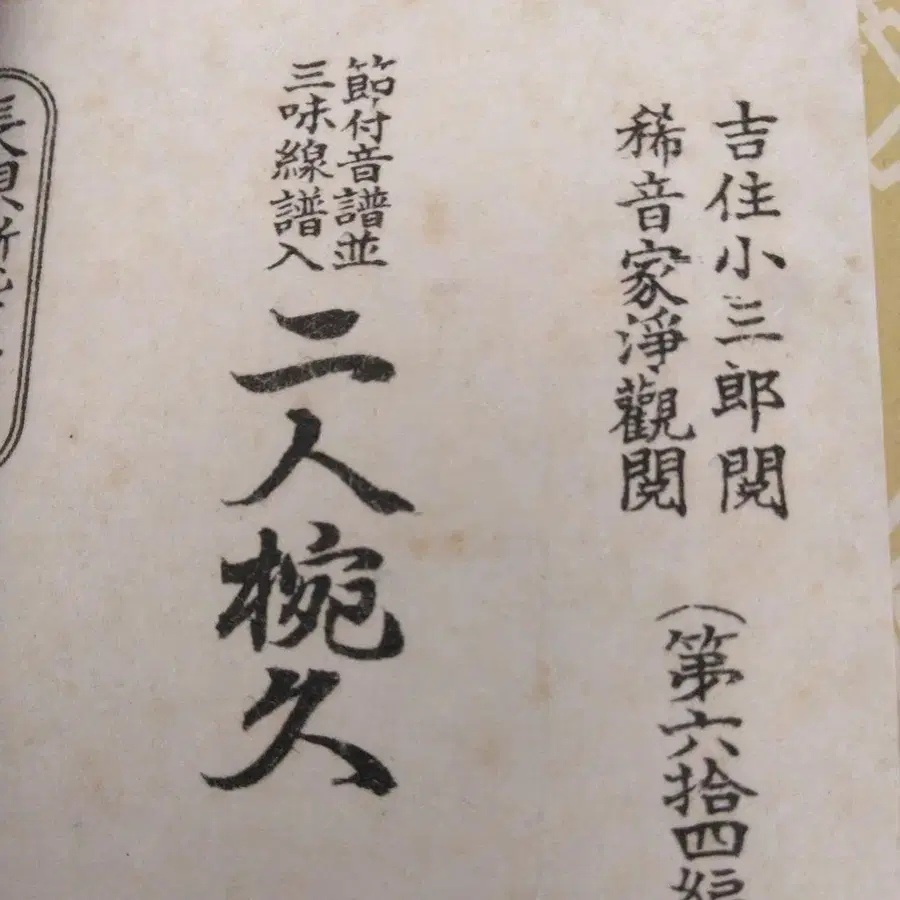 吉住小三郎閲
稀音家淨觀閲
（第六拾四編
節付音譜並
三味線譜入
二人椀久
長唄新